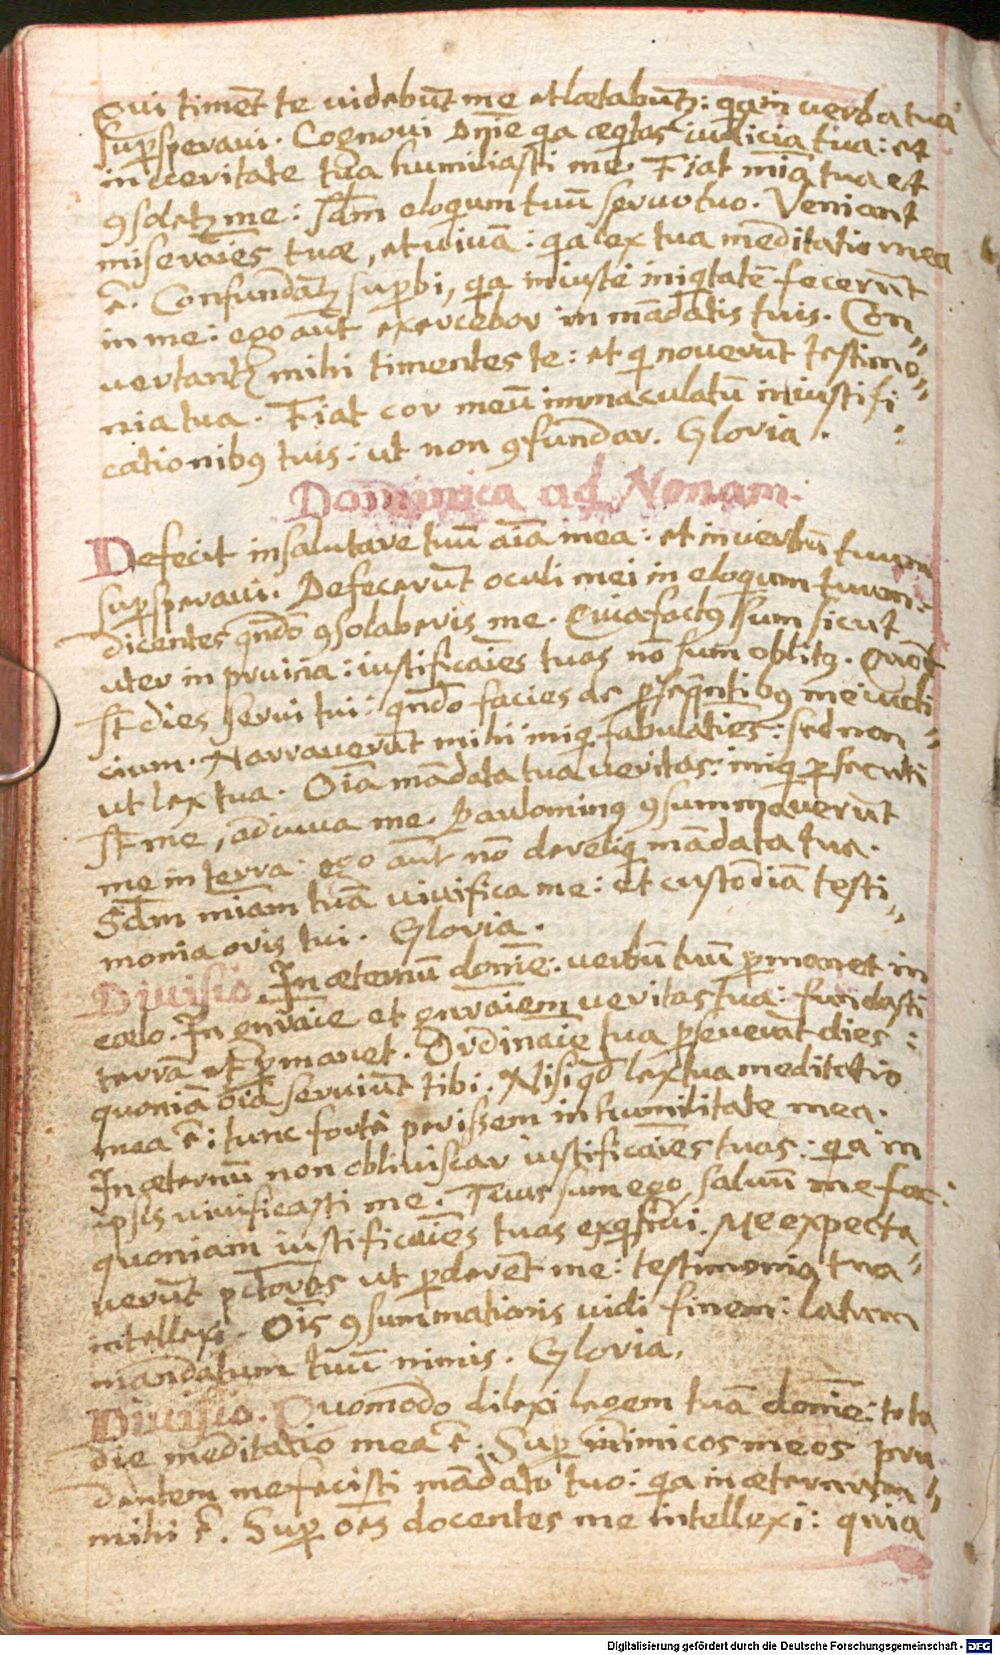 Qui timēt te videbūt me et lætabūtꝛ: qa in verba tua
sup̱speravi. Cognovi Dn̄e qa æqtas iudicia tua: et
in veritate tua humiliasti me. Fiat mīa tua ut
ꝯsoletꝛ me: scdm eloquium tuū servo tuo. Veniant
miserac̄ōes tuæ, et vivā: qa lex tua meditatio mea
ē. Confundātꝛ sup̱bi, qa iniuste iniqtatē fecerūt
in me: ego aūt exercebor in mādatis tuis. Con„
vertantꝛ mihi timentes te: et q noverūt testimo„
nia tua. Fiat cor meū immaculatū in iustifi„
cationibꝯ tuis: ut non ꝯfundar. Gloria.
Dominica ad Nonam.
Defecit in salutare tuū aīa mea: et in verbū tuum
sup̱speravi. Defecerūt oculi mei in eloquium tuum:
dicentes qn̄do ꝯsolaberis me. Quia factꝯ sum sicut
uter in pruina: iustificac̄ōes tuas nō sum oblitꝯ. Quot
st̄ dies servi tui: qn̄do facies de p̱seqntibꝯ me iudi„
cium. Narraverūt mihi iniq fabulatiōes: sed non
ut lex tua. Oīa mādata tua veritas: iniq p̱secuti
st̄ me, adiuva me. Paulominꝯ ꝯsummaverūt
me in terra: ego aūt nō dereliq mādata tua.
Scdm mīam tuā vivifica me: et custodiā testi„
monia oris tui. Gloria.
Divisio. In æternū domīe: verbū tuū p̱manet in
cælo. In gn̄raōe et gn̄raōem veritas tua: fundasti
terrā et p̱manet. Ordinaōe tua p̱severat dies:
quoniā oīa serviūt tibi. Nisi qd̄ lex tua meditatio
mea ē: tunc forte perissem in humilitate mea.
In æternū non obliviscar iustificac̄ōes tuas: qa in
ipsis vivificasti me. Tuus sum ego, salvū me fac:
quoniam iustificac̄ōes tuas exqsivi. Me expecta„
verūt pctōres ut p̱derēt me: testimonia tua
intellexi. Oīs ꝯsummationis vidi finem: latum
mandatum tuū nimis. Gloria.
Divisio. Quomodo dilexi legem tuā domīe: tota
die meditatio mea ē. Sup̱ inimicos meos pru„
dentem me fecisti mādato tuo: qa in æternum
mihi ē. Sup̱ oēs docentes me intellexi: quia
Digitalisierung gefördert durch die Deutsche Forschungsgemeinschaft - DFG